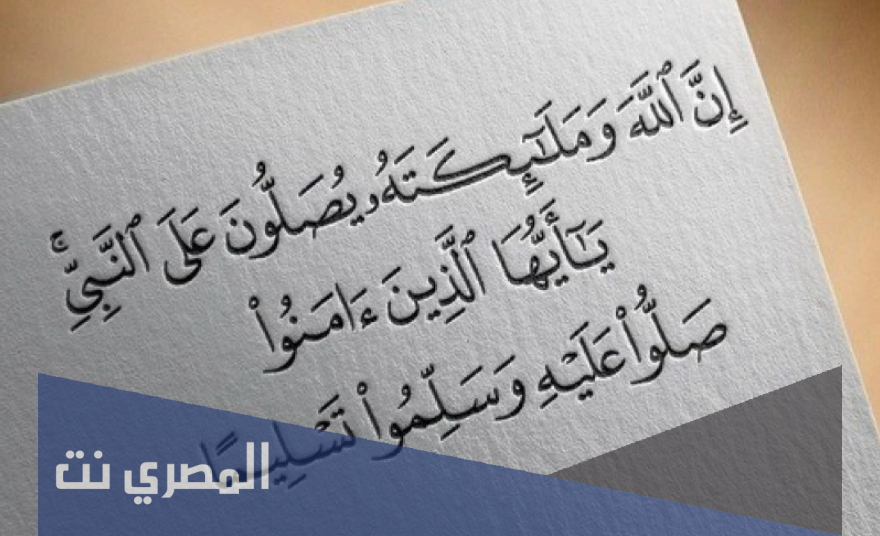 إِنَّ ٱللَّهَ وَمَلَٰٓئِكَتَهُۥ يُصَلُّونَ عَلَى ٱلنَّبِىِّۚ
يَٰٓأَيُّهَا ٱلَّذِينَ ءَامَنُوا۟
صَلُّوا۟ عَلَيْهِ وَسَلِّمُوا۟ تَسْلِيمًا
المصري نت